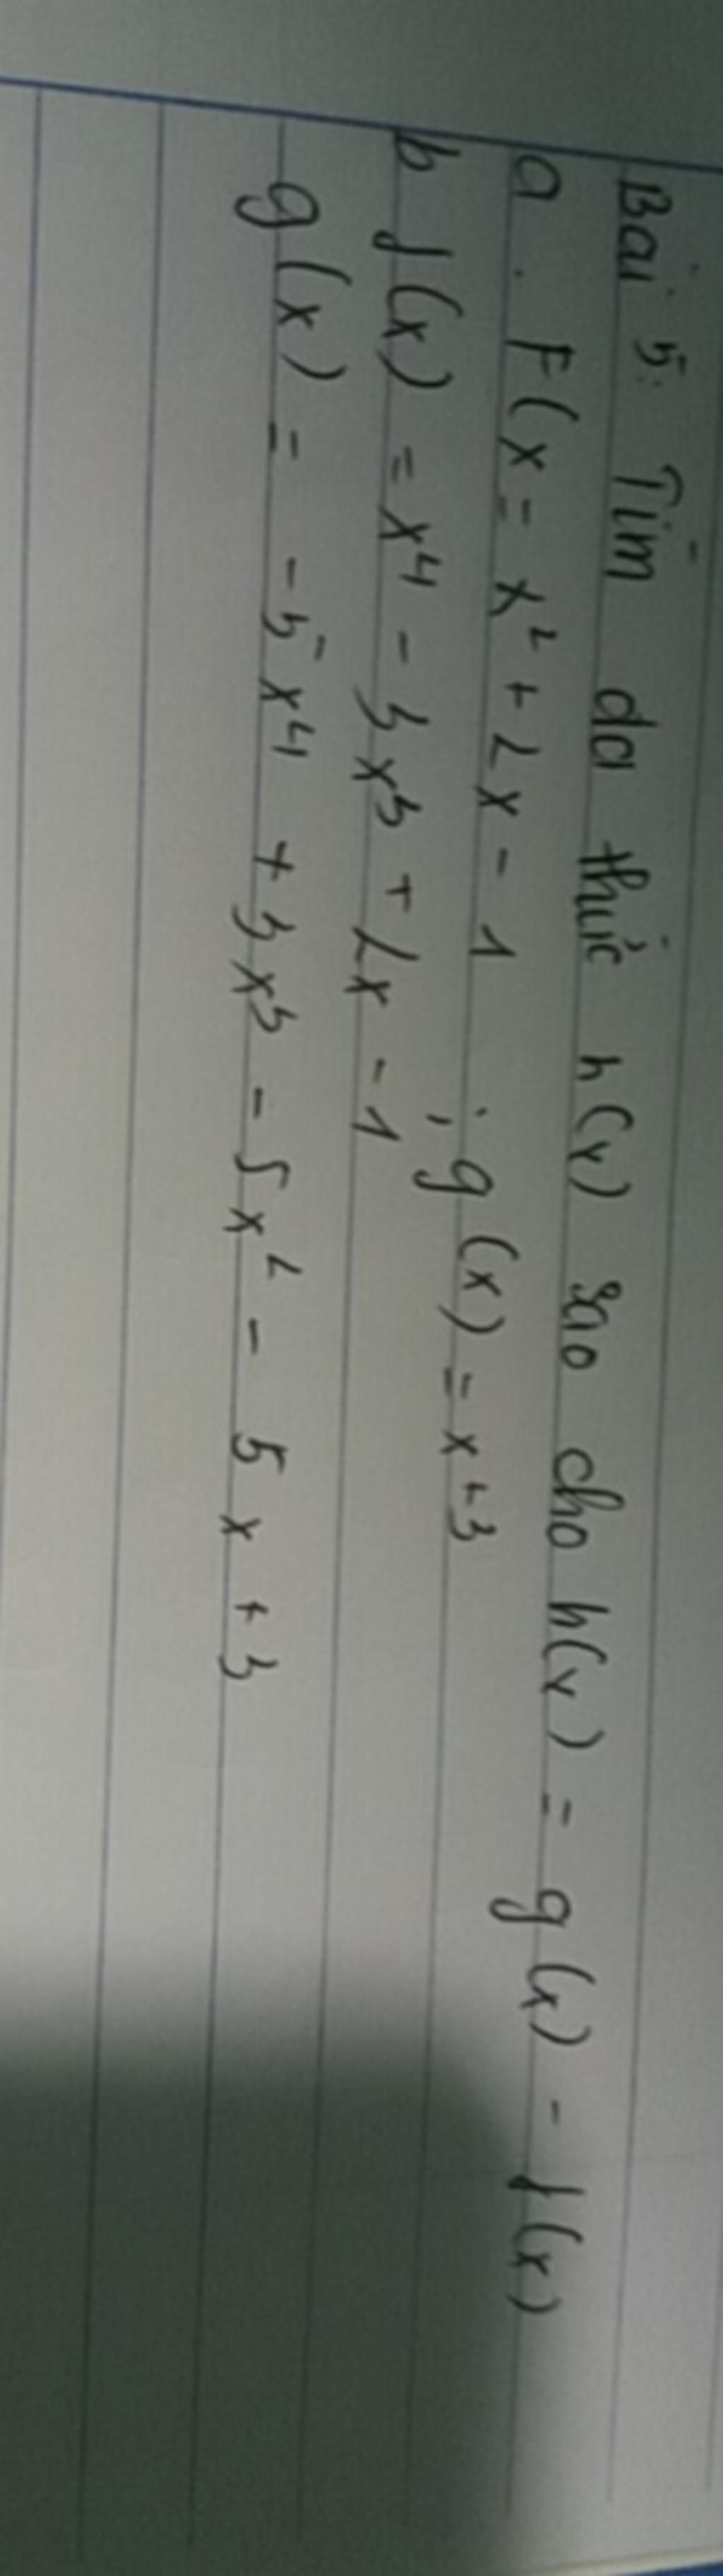 Bài 5: Tìm đa thức h(x) sao cho h(x) = g(x) - f(x)
a. F(x = x² + 2x - 1 ; g(x) = x+3
b f(x) = x⁴ - 3x³ + 2x - 1
g(x) = -5x⁴ + 3x³ - 5x² - 5x + 3